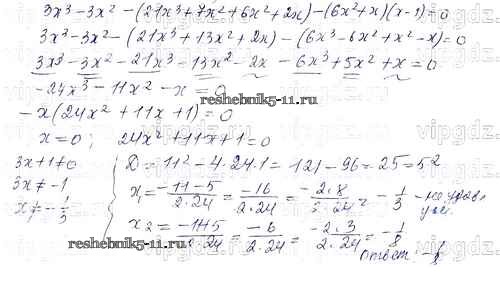 3x³-3x²-(21x³+7x²+6x²+2x)-(6x²+x)(x-1)=0
3x³-3x²-(21x³+13x²+2x)-(6x³-6x²+x²-x)=0
3x³-3x²-21x³-13x²-2x-6x³+5x²+x=0
-24x³-11x²-x=0
-x(24x²+11x+1)=0
reshebnik5-11.ru
x=0; 24x²+11x+1=0
3x+1≠0
D=11²-4·24·1=121-96=25=5²
3x≠-1
x₁=\frac{-11-5}{2·24}=\frac{-16}{2·24}=\frac{-2·8}{2·24}=-\frac{1}{3} - не удовл
усл.
x≠-\frac{1}{3}
x₂=\frac{-11+5}{2·24}=\frac{-6}{2·24}=\frac{-2·3}{2·24}=-\frac{1}{8}
reshebnik5-11.ru
Ответ: -\frac{1}{8}
vipgdz.